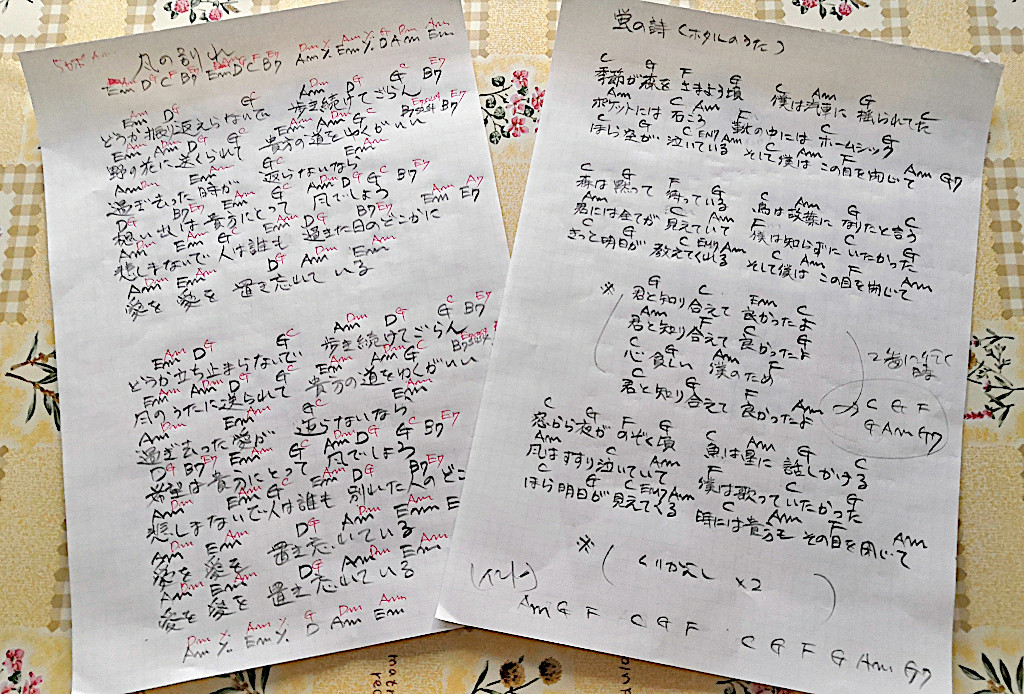 風の別れ
Em D C B7 Em D C B7 Am % Em % D Am Em
Em D C Am D G B7
どうか振り返えらないで 歩き続けてごらん
Em Am D G Em Am G B7
野の花に送くられて 貴方の道をゆくがいい
Am Em G Em
過ぎ去った時が 返らないなら
D B7 Em G Am D G B7
想い出しは貴方にとって 風でしょう
Am Em G D B7 Em E7
悲しまないで 人は誰も 過ぎた日のどこかに
Am Em D Am Em
愛を 愛を 置き忘れている
Em D G Am D G B7
どうか立ち止まらないで 歩き続けてごらん
Em Am D G Em Am G B7
風のうたに送られて 貴方の道をゆくがいい
Am Em G Em
過ぎ去った愛が 返らないなら
D B7 Em G Am D G B7
希望は貴方にとって 風でしょう
Am Em G D B7 Em
悲しまないで 人は誰も 別れた人のどこ
Am Em D Am Em E
愛を 愛を 置き忘れている
Am Em D Am Em
愛を 愛を 置き忘れている
Am % Em % D Am Em
蛍の詩 (ホタルのうた)
C G F G C Am G C
季節が森を さまよう頃 僕は汽車に 揺られてた
Am C Am F C G
ポケットには 石ころ 鞄の中には ホームシック
C G C Em7 Am C Am F Am G7
ほら空が 泣いている そして僕は この目を閉じて
C G F G C Am G C
森は黙って 待っている 鳥は改葉に なりたと言う
Am C Am F C G
君には全てが 見えていて 僕は知らずに いたかった
C G C Em7 Am C Am F Am
きっと明日が 教えてくれる そして僕は この目を閉じて
※ G C Em C
君と知り合えて 良かったよ
Am F C G
君と知り合えて 良かったよ
C G Am
心貧しい 僕のため
C G F Am → C G F
君と知り合えて 良かったよ G Am G7
2番に行く時
C G F G C Am G C
窓から夜が のぞく頃 魚は星に 話しかける
Am C Am F C G
風はすすり泣いていて 僕は歌っていたかった
C G C Em7 Am C Am F Am
ほら明日が 見えてくる 時には貴方も その目を閉じて
※ ( くりかえし ×2 )
Am G F C G F C G F G Am G7